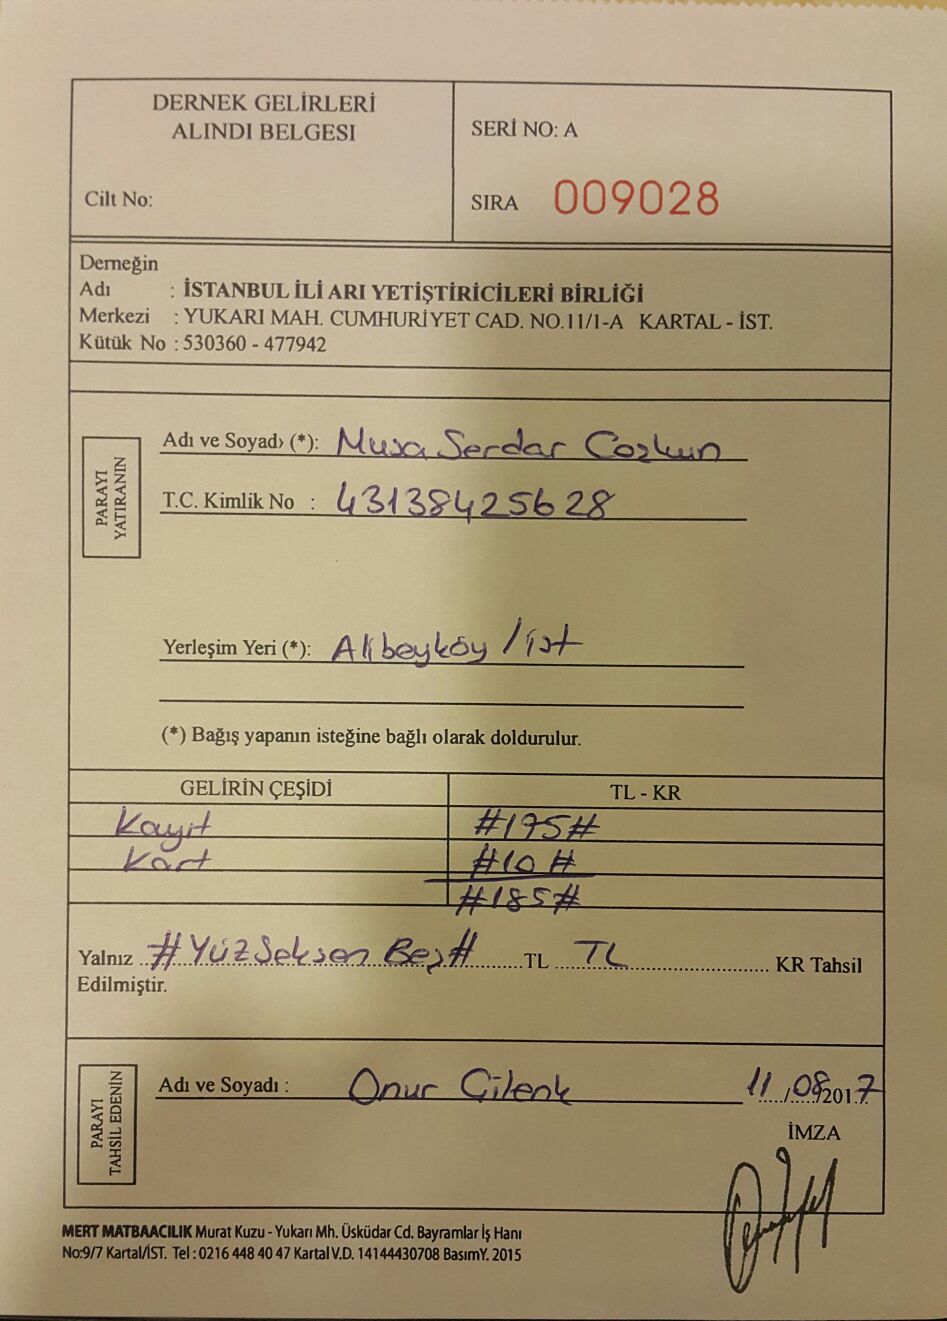 DERNEK GELİRLERİ
ALINDI BELGESI
Cilt No:
SERİ NO: A
SIRA 009028
Derneğin
Adı : İSTANBUL İLİ ARI YETİŞTİRİCİLERİ BİRLİĞİ
Merkezi : YUKARI MAH. CUMHURİYET CAD. NO.11/1-A KARTAL - İST.
Kütük No : 530360 - 477942
PARAYI
YATIRANIN
Adı ve Soyadı (*): Musa Serdar Coşkun
T.C. Kimlik No : 43138425628
Yerleşim Yeri (*): Alibeyköy / ist
(*) Bağış yapanın isteğine bağlı olarak doldurulur.
GELİRİN ÇEŞİDİ TL - KR
Kayıt #175#
Kart #10#
#185#
Yalnız .. #Yüz Seksen Beş# ........ TL ... TL ........................ KR Tahsil
Edilmiştir.
PARAYI
TAHSİL EDENİN
Adı ve Soyadı : Onur Çilenk 11/08/2017
İMZA
MERT MATBAACILIK Murat Kuzu - Yukarı Mh. Üsküdar Cd. Bayramlar İş Hanı
No:9/7 Kartal/İST. Tel : 0216 448 40 47 Kartal V.D. 14144430708 BasımY. 2015